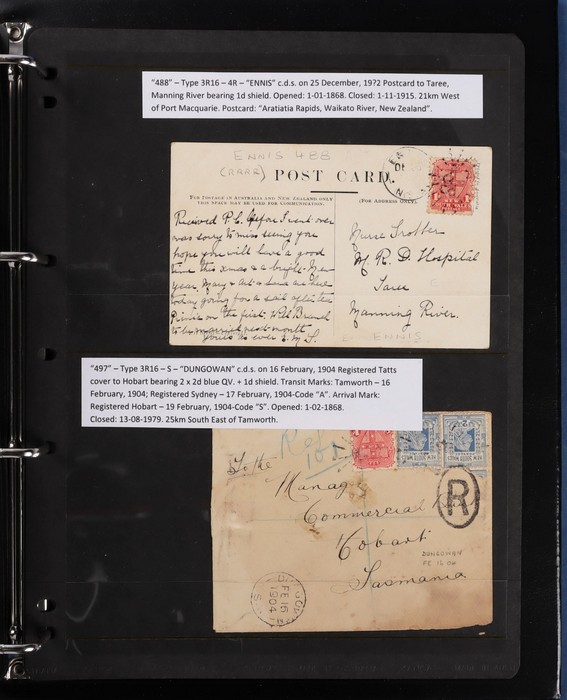 "488" – Type 3R16 – 4R – "ENNIS" c.d.s. on 25 December, 19?2 Postcard to Taree,
Manning River bearing 1d shield. Opened: 1-01-1868. Closed: 1-11-1915. 21km West
of Port Macquarie. Postcard: "Aratiatia Rapids, Waikato River, New Zealand".
ENNIS 488
(RRRR)
POST CARD.
THE FOOTAGE IN AUSTRALIA AND NEW ZEALAND ONLY
THIS SPACE MAY BE USED FOR COMMUNICATION.
(FOR ADDRESS ONLY).
Received P.C. before I went over
was sorry to miss seeing you
hope you will have a good
time this xmas & a bright New
year. Mary & Art are
today going for a sail after tea
Picnic on the first, Will Branch
to be married next month
Yours as ever E.M.S.
Nurse Trotter
M. R. D. Hospital
Taree
Manning River.
ENNIS
"497" – Type 3R16 – S – "DUNGOWAN" c.d.s. on 16 February, 1904 Registered Tatts
cover to Hobart bearing 2 x 2d blue QV. + 1d shield. Transit Marks: Tamworth – 16
February, 1904; Registered Sydney – 17 February, 1904-Code "A". Arrival Mark:
Registered Hobart – 19 February, 1904-Code "S". Opened: 1-02-1868.
Closed: 13-08-1979. 25km South East of Tamworth.
To the
Manager
Commercial
Hobart
Tasmania
R
DUNGOWAN
FE 16 04
FE 16
1904